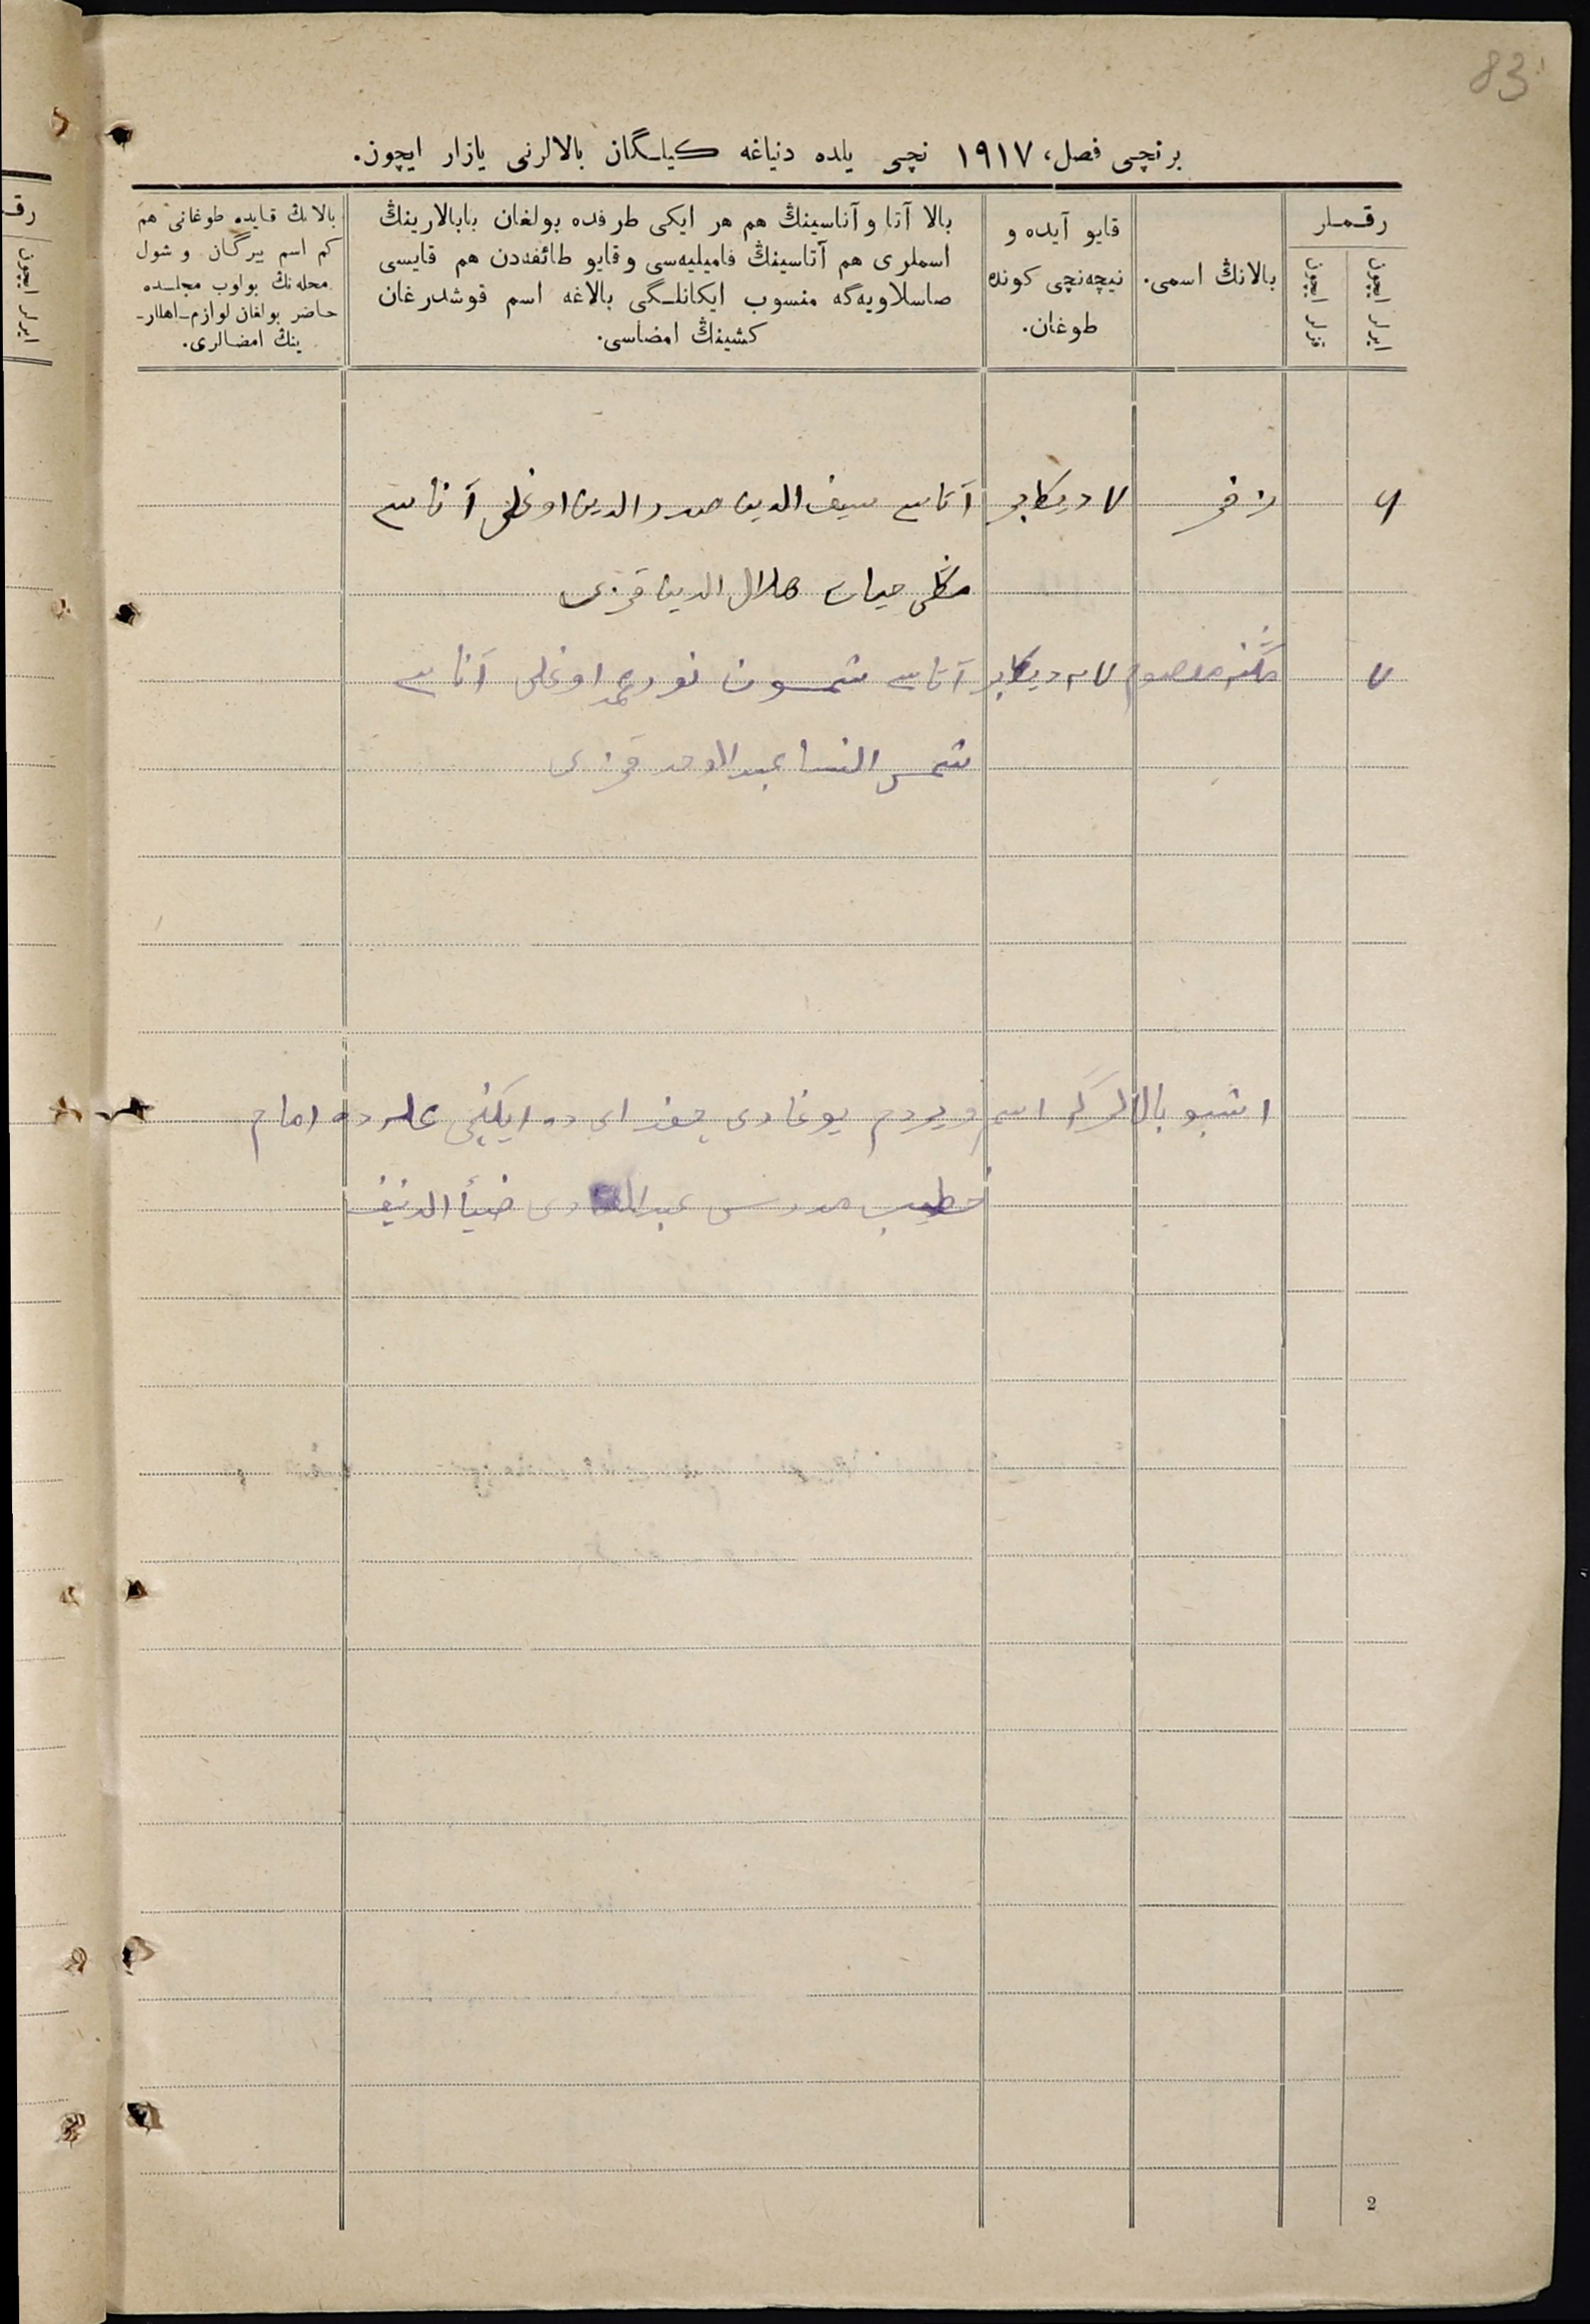 83
برنچی فصل، ١٩١٧ نچی یلده دنیاغه کیلـگان بالالرنی یازار ایچون.
رقـملر
ایرلر ایچون
قزلر ایچون
بالانڭ اسمی.
قایو آیده و
نیچه‌نچی کونده
طوغان.
بالا آتا و آناسینڭ هم هر ایکی طرفده بولغان بابالارینڭ
اسملری هم آتاسینڭ فامیلیه‌سی و قایو طائفه‌دن هم قایسی
صاسلاویه‌گه منسوب ایکانلـگی بالاغه اسم قوشدرغان
کشینڭ امضاسی.
بالانڭ قایده طوغانی هم
کم اسم بیرگان و شول
محله‌نڭ بولوب مجلـسده
حاضر بولغان لوازم-اهللر-
ینڭ امضالری.
٦ ظفر ٧ دیکابر آتاسی سیف الدین صدر الدین اوغلی آناسی
حیات هلال الدین قزی
٧ دیکابر آتاسی شمسون نورمحمد اوغلی آناسی
شمس النسا عبد الاوحد قزی
اشبو بالالرگه اسم ویردم یوغاری ایکنچی محله‌ده امام
خطیب مدرس ضیأ الدینف
2
رقـ
ایرلر ایچون